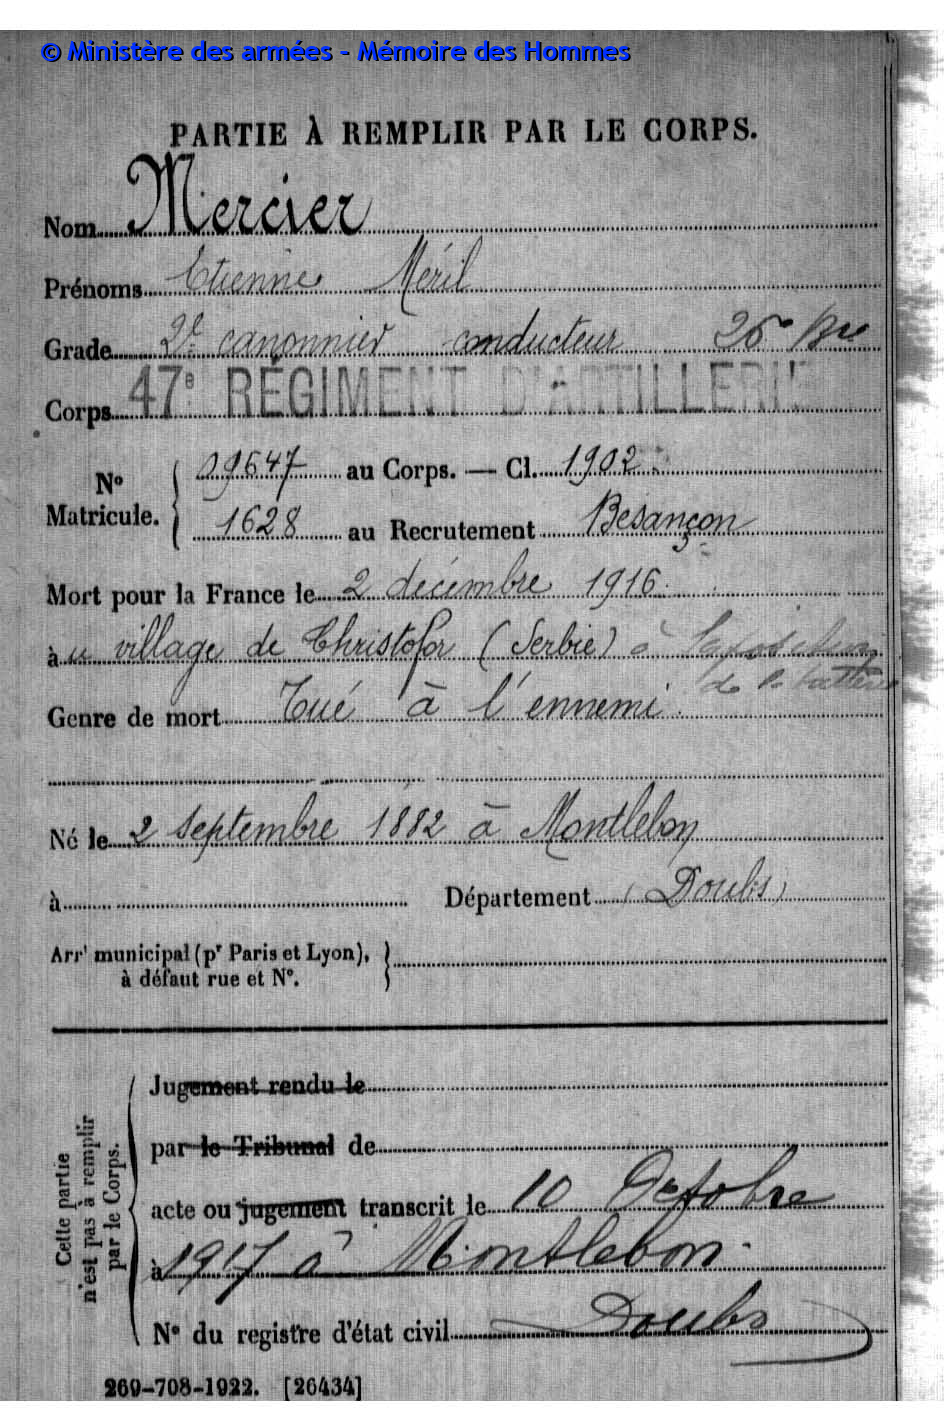 © Ministère des armées - Mémoire des Hommes
PARTIE À REMPLIR PAR LE CORPS.
Nom Mercier
Prénoms Etienne Méril
Grade 2e canonnier conducteur 26e Bie
Corps 47e RÉGIMENT D'ARTILLERIE
No Matricule. 09647 au Corps. — Cl. 1902.
1628 au Recrutement Besançon
Mort pour la France le 2 décembre 1916.
à u village de Christofor (Serbie) à la position
de la batterie
Genre de mort Tué à l'ennemi.
Né le 2 septembre 1882 à Montlebon
à Département (Doubs)
Arrt municipal (pr Paris et Lyon),
à défaut rue et No.
Cette partie n'est pas à remplir par le Corps.
Jugement rendu le
par le Tribunal de
acte ou jugement transcrit le 10 Octobre
à 1917 à Montlebon.
No du registre d'état civil Doubs
269-708-1922. [26434]